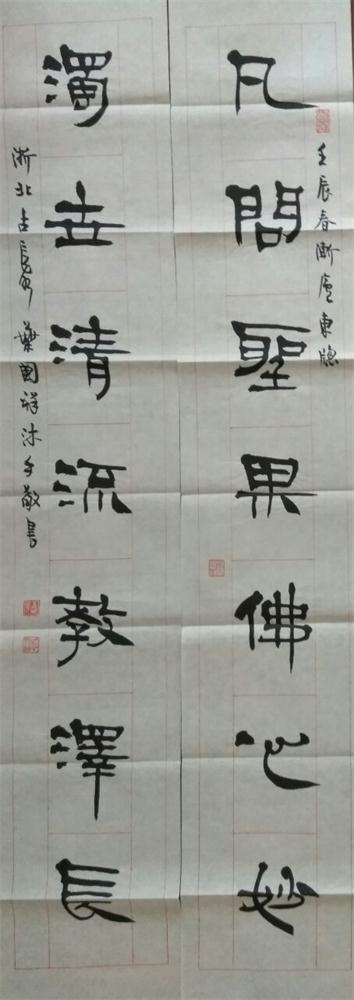 壬辰春廬東牕
凡問聖果佛心妙
濁世清流教澤長
浙北古長興 葉國祥沐手敬書